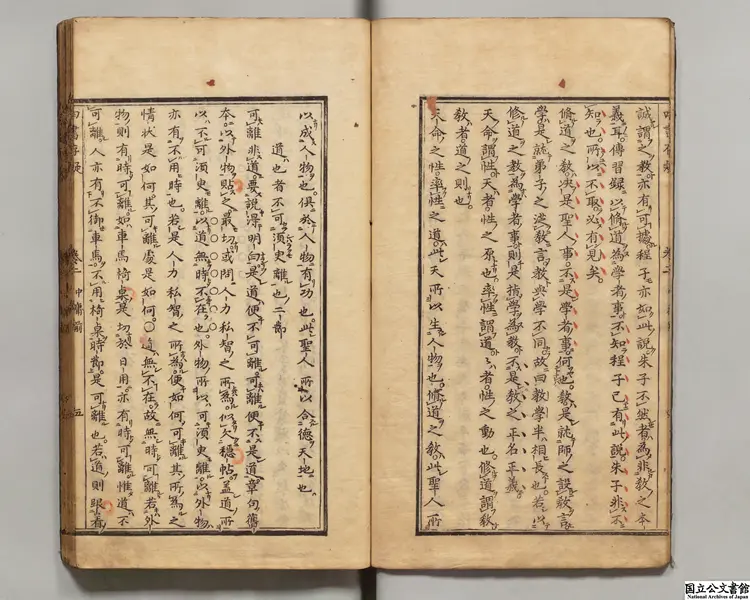 誠謂之教亦有可據程子亦如此說朱子不然者為非教之本
義耳傳習録以修道為學者事不知程子已有此說朱子非不
知也所以不取必有見矣
修道之教决是聖人事不是學者事何也教是就師之設教言
學是就弟子之從教言教與學不同故曰教學半相長也若以
修道之教為學者事則是指學為教不是教之正名正義
天命謂性天者性之原也率性謂道々者性之動也修道謂教
教者道之則也
天命之性率性之道此天所以生人物也修道之教此聖人所
以成人物也俱於人物有功也此聖人所以合德天地也
道也者不可須臾離也二節
可離非道要說得明白是道便不可離可離便不是道章句舊
本以外物貼之最切或問人力私智之所為似欠穩帖盖道所
以不可須臾離以道無時不在也外物所以可須臾離以外物
亦有不用時也若是人力私智之所為便如何可離其所為之
情狀是如何其可離處是如何○道無不在故無時可離若外
物則有時可離如車馬椅桌是切於日用亦有時可離惟道不
可離人亦有不御車馬不用椅桌時節是可離也若道則眼看
四書存疑
卷二 中庸
五
国立公文書館
National Archives of Japan